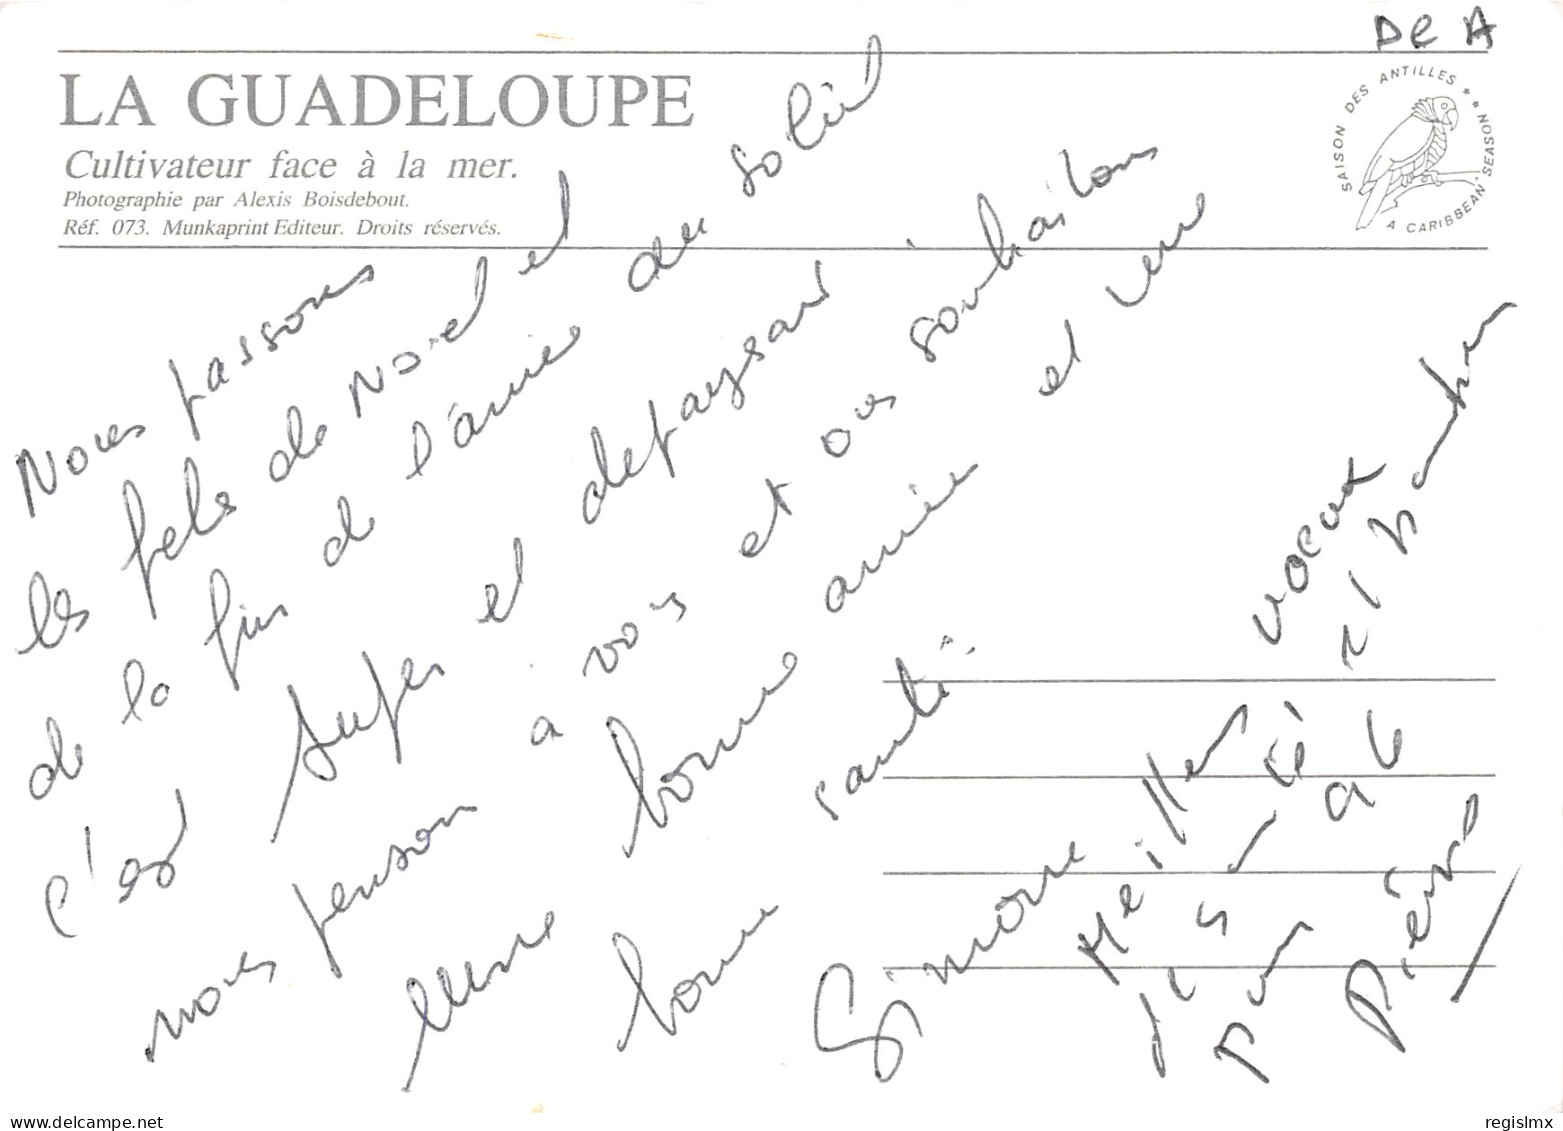 De A
LA GUADELOUPE
Cultivateur face à la mer.
Photographie par Alexis Boisdebout.
Réf. 073. Munkaprint Editeur. Droits réservés.
SAISON DES ANTILLES ** A CARIBBEAN SEASON
Nous passons
les fets de Noël et
de la fin de l'année au soleil
c'est super et depaysant
nous penson à vous et vous souhaitons
une bonne année et une
bonne santé
Simone
Meilleurs voeux
de santé
pour
Pierre
regislmx